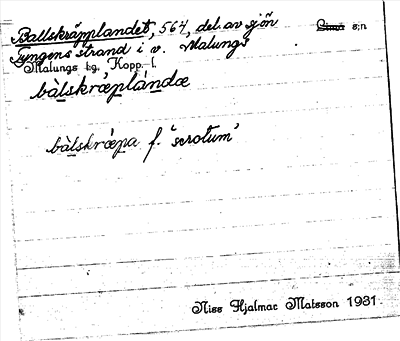 Ballskräpplandet, 564, del av sjön
Tyngens strand i v. Malungs
Lima s:n
Malungs tg. Kopp. l.
bàlskræplándæ
bàlskrǽpa f. "scrotum"
Niss Hjalmar Matsson 1931.